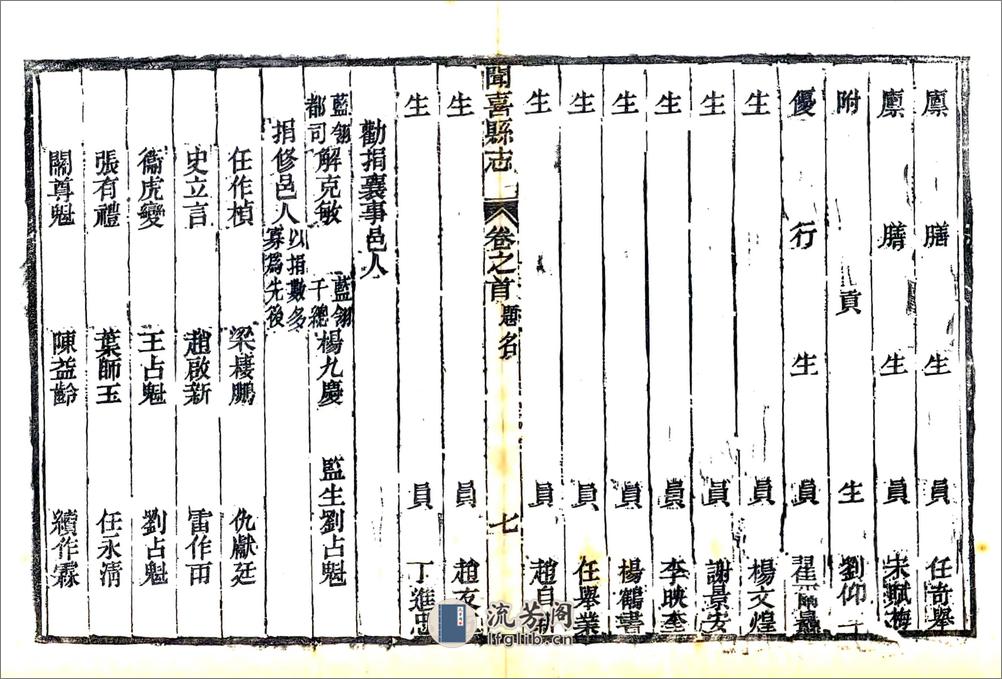 廩膳生員任奇舉
廩膳生員宋賦梅
附貢生劉仰
優行生員翟
生員楊文煌
生員謝景安
生員李映奎
生員楊鶴書
生員任舉業
生員趙自
聞喜縣志 卷之首 題名 七
生員趙友
生員丁進忠
勸捐襄事邑人
藍翎都司解克敏 藍翎千總楊九慶 監生劉占魁
捐修邑人以捐數多寡為先後
任作楨 梁棲鵬 仇獻廷
史立言 趙啟新 雷作雨
衞虎變 王占魁 劉占魁
張有禮 葉師玉 任永清
關尊魁 陳益齡 續作霖
流芳阁
lfglib.cn